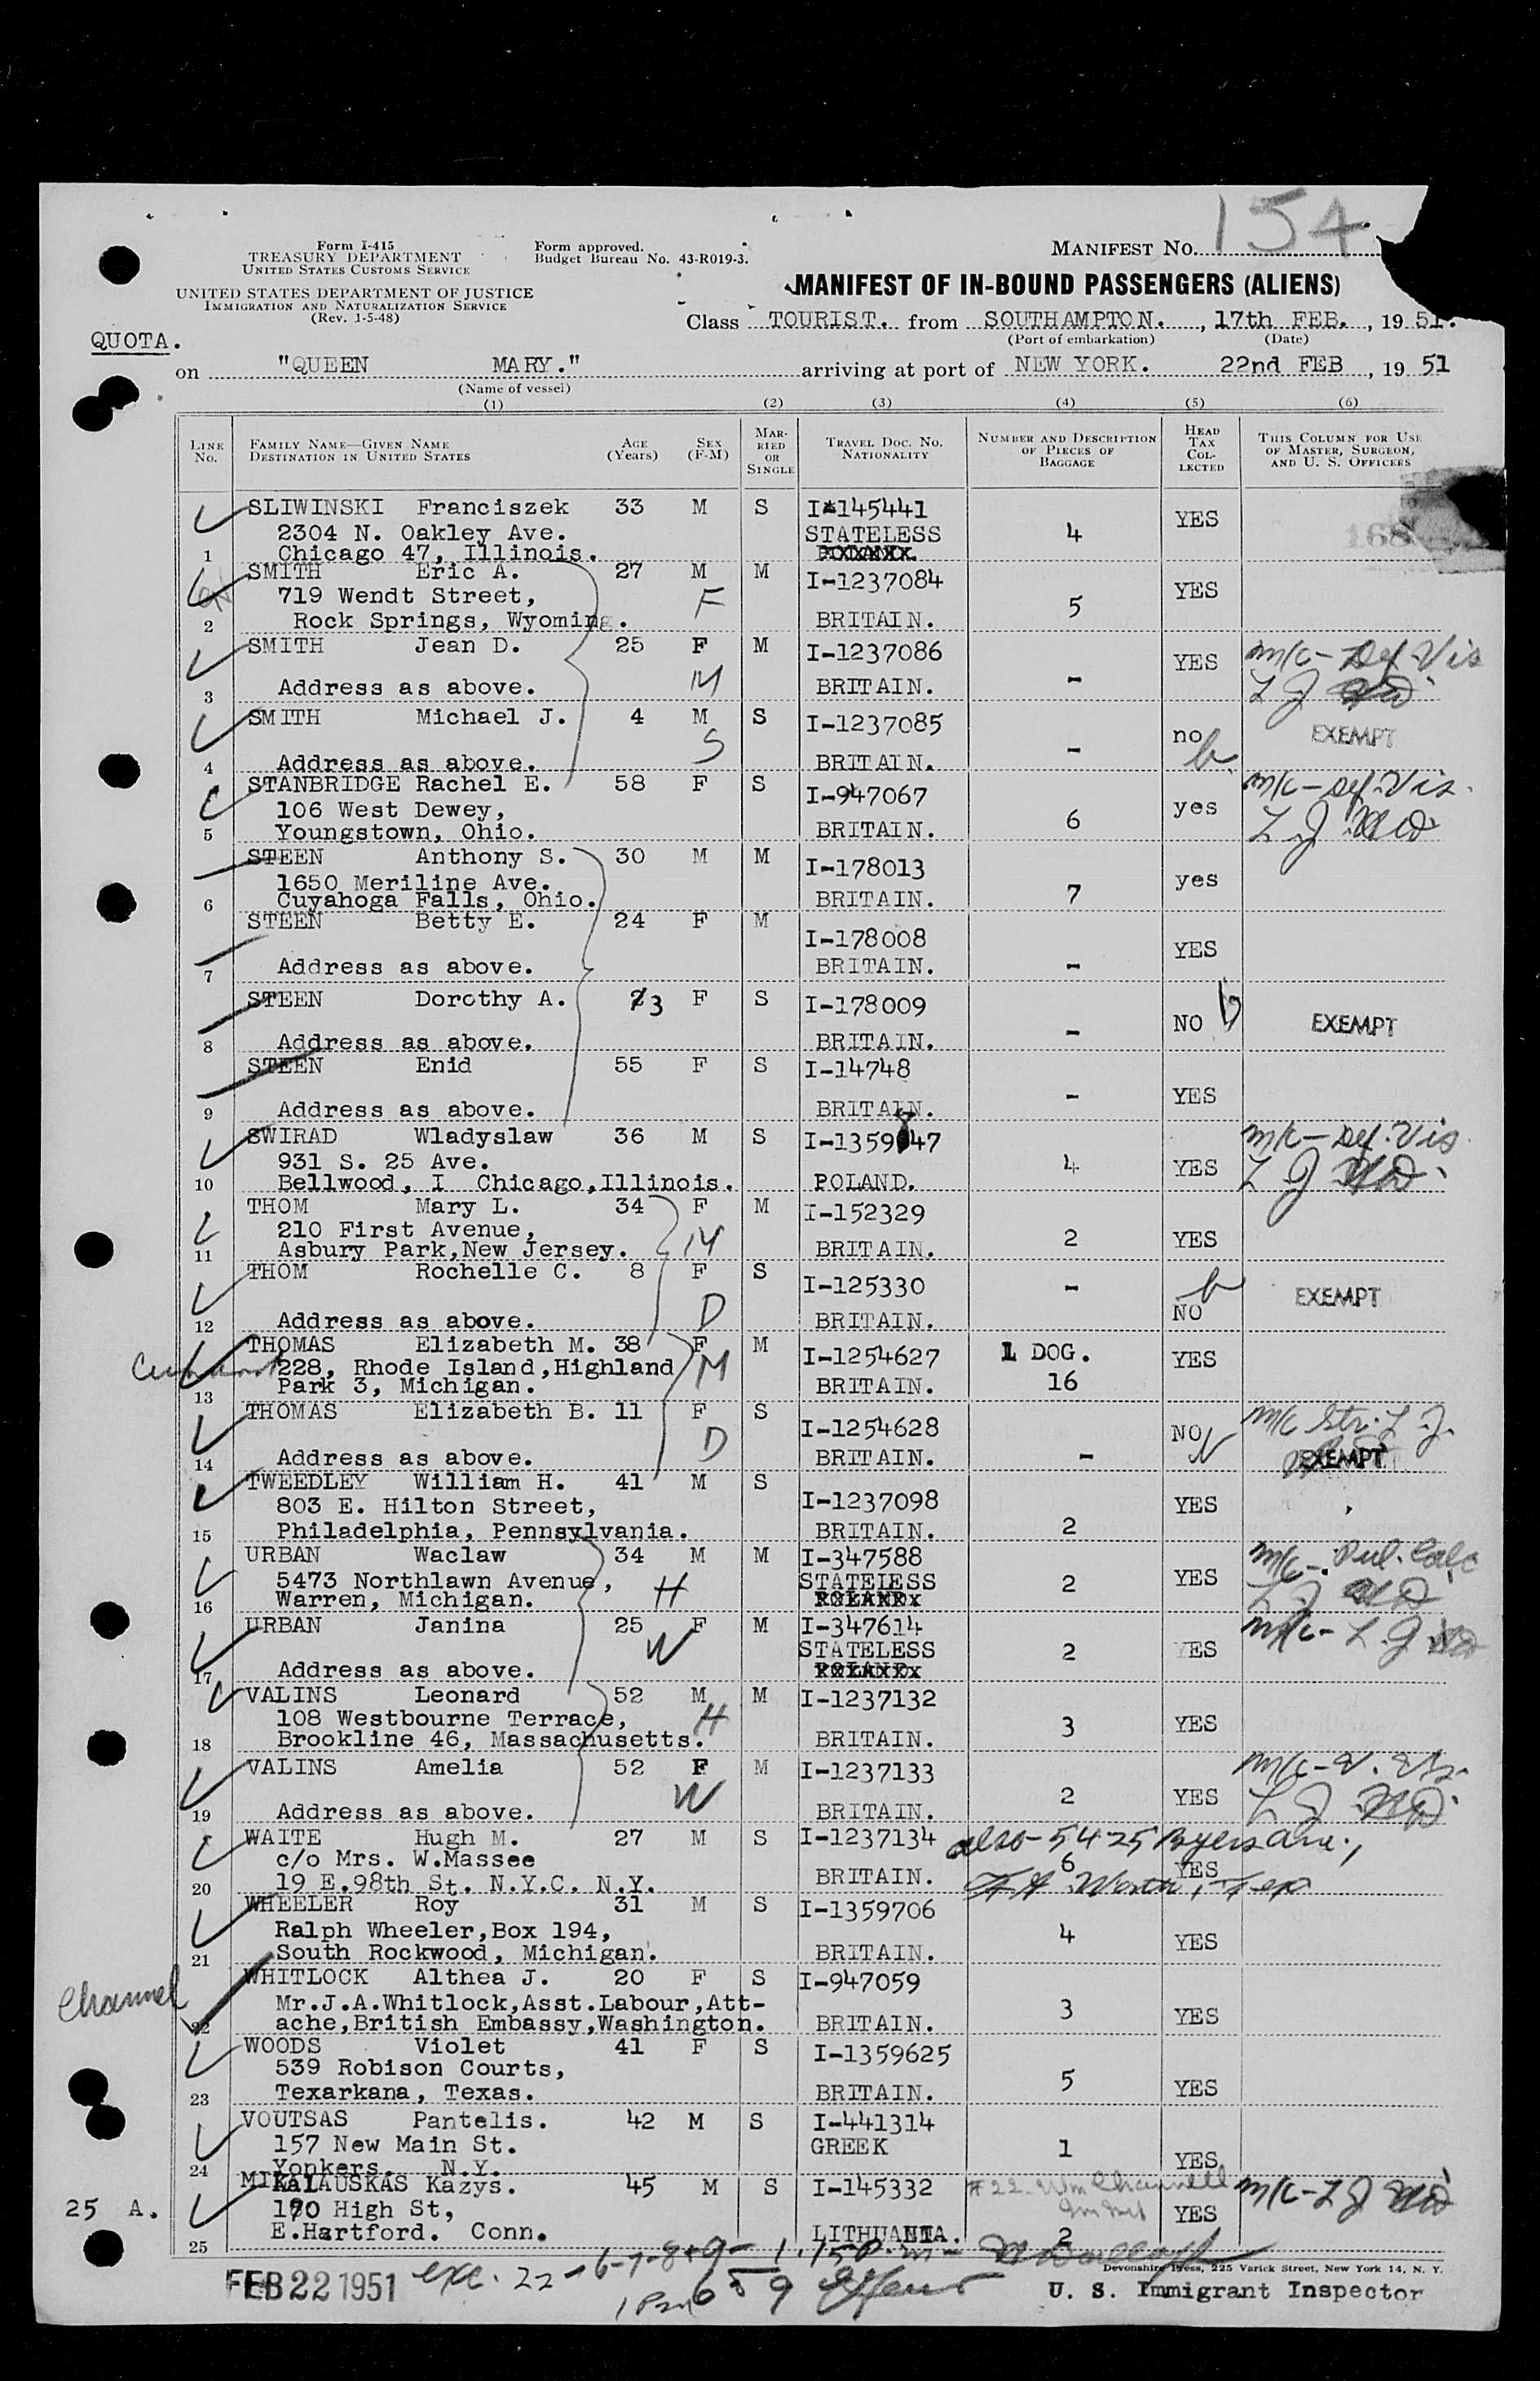 154
Form I-415
TREASURY DEPARTMENT
UNITED STATES CUSTOMS SERVICE
Form approved.
Budget Bureau No. 43-R019-3.
MANIFEST No.
UNITED STATES DEPARTMENT OF JUSTICE
IMMIGRATION AND NATURALIZATION SERVICE
(Rev. 1-5-48)
MANIFEST OF IN-BOUND PASSENGERS (ALIENS)
Class TOURIST. from SOUTHAMPTON., 17th FEB., 19 51.
(Port of embarkation) (Date)
QUOTA.
on "QUEEN MARY." arriving at port of NEW YORK. 22nd FEB, 19 51
(Name of vessel)
(1) (2) (3) (4) (5) (6)
LINE No. FAMILY NAME—GIVEN NAME DESTINATION IN UNITED STATES AGE (Years) SEX (F-M) MARRIED OR SINGLE TRAVEL DOC. NO. NATIONALITY NUMBER AND DESCRIPTION OF PIECES OF BAGGAGE HEAD TAX COLLECTED THIS COLUMN FOR USE OF MASTER, SURGEON, AND U. S. OFFICERS
SLIWINSKI Franciszek 33 M S I-145441 YES
2304 N. Oakley Ave. STATELESS 4 168
1 Chicago 47, Illinois.
SMITH Eric A. 27 M M I-1237084 YES
719 Wendt Street, F 5
2 Rock Springs, Wyoming. BRITAIN.
SMITH Jean D. 25 F M I-1237086 YES m/c- Def. Vis
3 Address as above. M BRITAIN. - L J
SMITH Michael J. 4 M S I-1237085 no EXEMPT
4 Address as above. S BRITAIN. -
STANBRIDGE Rachel E. 58 F S I-947067 yes m/c- Def. Vis.
106 West Dewey, 6 L J
5 Youngstown, Ohio. BRITAIN.
STEEN Anthony S. 30 M M I-178013 yes
1650 Meriline Ave. 7
6 Cuyahoga Falls, Ohio. BRITAIN.
STEEN Betty E. 24 F M I-178008 YES
7 Address as above. BRITAIN. -
STEEN Dorothy A. 3 F S I-178009 NO EXEMPT
8 Address as above. BRITAIN. -
STEEN Enid 55 F S I-14748 YES
9 Address as above. BRITAIN. -
SWIRAD Wladyslaw 36 M S I-1359 47 YES m/c- Def. Vis
931 S. 25 Ave. 4 L J
10 Bellwood, I Chicago,Illinois. POLAND.
THOM Mary L. 34 F M I-152329 YES
210 First Avenue, M 2
11 Asbury Park,New Jersey. BRITAIN.
THOM Rochelle C. 8 F S I-125330 - NO EXEMPT
12 Address as above. D BRITAIN.
THOMAS Elizabeth M. 38 F M I-1254627 1 DOG. YES
228, Rhode Island,Highland M
13 Park 3, Michigan. BRITAIN. 16
THOMAS Elizabeth B. 11 F S I-1254628 NO m/c Str. L J.
14 Address as above. D BRITAIN. - EXEMPT
TWEEDLEY William H. 41 M S I-1237098 YES
803 E. Hilton Street, 2
15 Philadelphia, Pennsylvania. BRITAIN.
URBAN Waclaw 34 M M I-347588 YES m/c-
5473 Northlawn Avenue, H STATELESS 2 L J
16 Warren, Michigan.
URBAN Janina 25 F M I-347614 YES m/c- L J
W STATELESS 2
17 Address as above.
VALINS Leonard 52 M M I-1237132 YES
108 Westbourne Terrace, H 3
18 Brookline 46, Massachusetts. BRITAIN.
VALINS Amelia 52 F M I-1237133 YES m/c-
W 2 L J
19 Address as above. BRITAIN.
WAITE Hugh M. 27 M S I-1237134 also- 5425 Byers Ave.,
c/o Mrs. W.Massee 6 YES
20 19 E.98th St. N.Y.C. N.Y. BRITAIN. Ft Worth, Tex
WHEELER Roy 31 M S I-1359706
Ralph Wheeler,Box 194, 4 YES
21 South Rockwood, Michigan. BRITAIN.
Channel WHITLOCK Althea J. 20 F S I-947059
Mr.J.A.Whitlock,Asst.Labour,Att- 3 YES
22 ache,British Embassy,Washington. BRITAIN.
WOODS Violet 41 F S I-1359625
539 Robison Courts, 5 YES
23 Texarkana, Texas. BRITAIN.
VOUTSAS Pantelis. 42 M S I-441314
157 New Main St. GREEK 1 YES
24 Yonkers. N.Y.
MIKALAUSKAS Kazys. 45 M S I-145332 m/c- L J
25 A. 170 High St, YES
25 E.Hartford. Conn. LITHUANIA. 2
FEB 22 1951 exc. 22-6-7-8+9- 1.15 P.m-
Devonshire Press, 225 Varick Street, New York 14, N. Y.
U. S. Immigrant Inspector